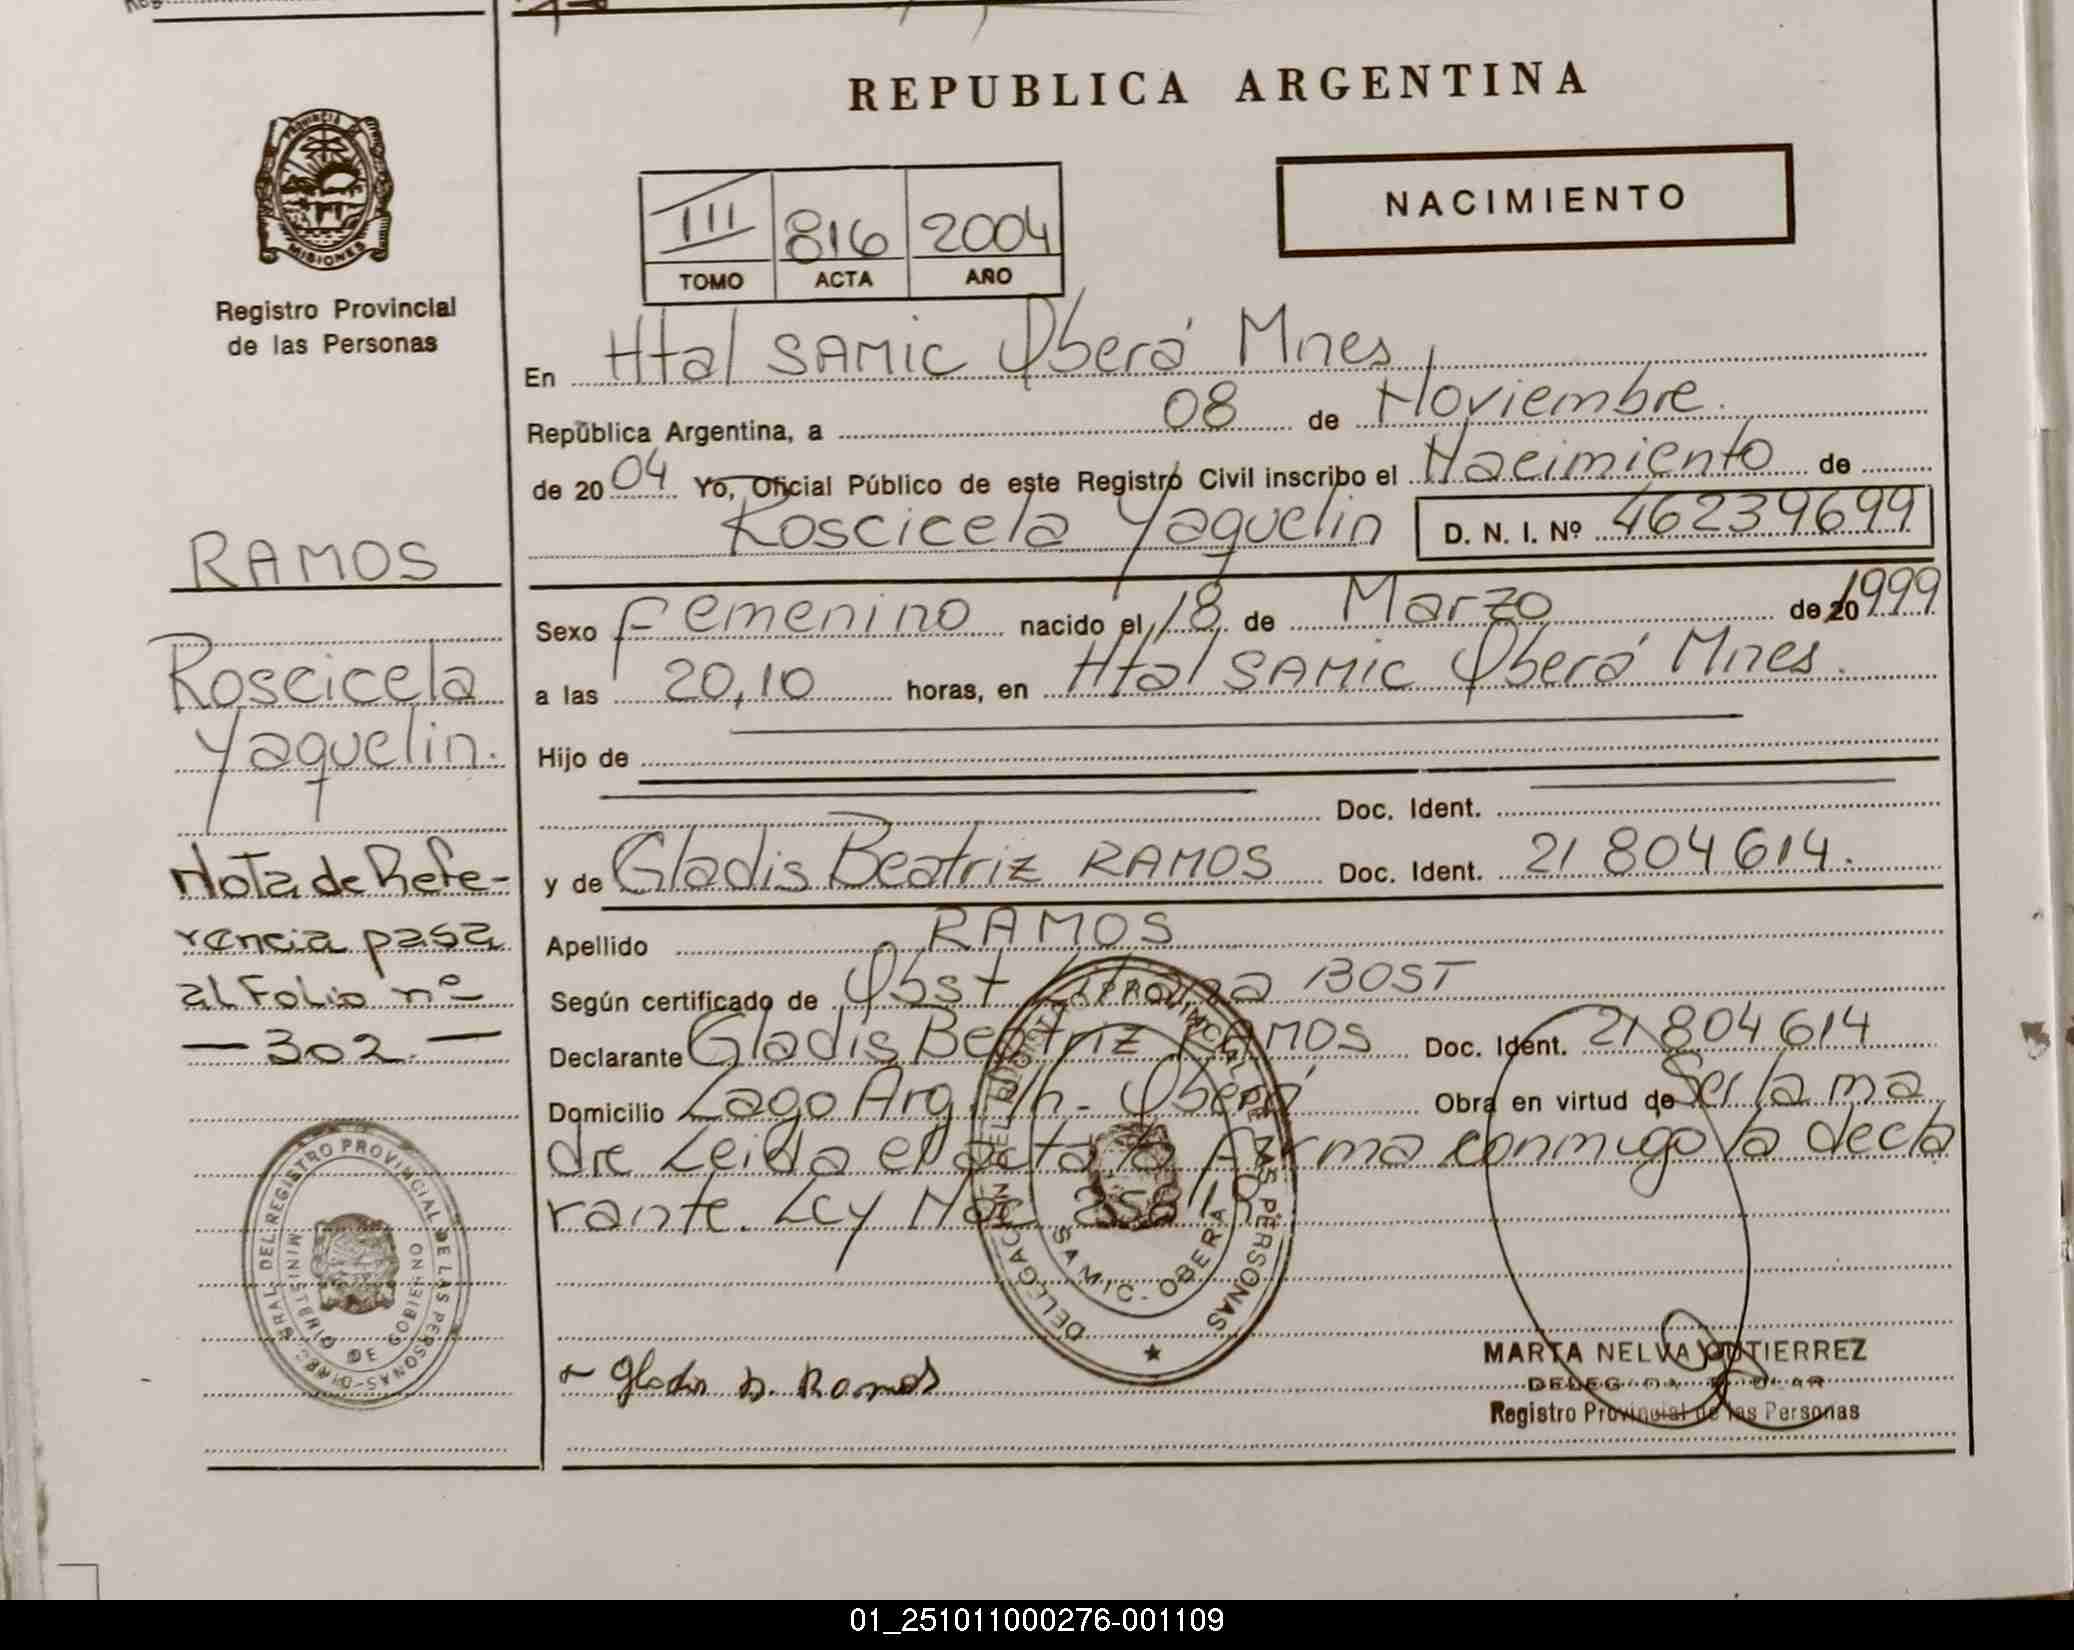 REPUBLICA ARGENTINA
NACIMIENTO
III 816 2004
TOMO ACTA AÑO
PROVINCIA DE
MISIONES
Registro Provincial
de las Personas
En Htal SAMIC Oberá Mnes
República Argentina, a 08 de Noviembre.
de 2004 Yo, Oficial Público de este Registro Civil inscribo el Nacimiento de
Roscicela Yaquelin D. N. I. Nº 46239699
RAMOS
Roscicela
Yaquelin.
Sexo Femenino nacido el 18 de Marzo de 20 1999
a las 20,10 horas, en Htal SAMIC Oberá Mnes.
Hijo de
Doc. Ident.
y de Gladis Beatriz RAMOS Doc. Ident. 21 804 614.
Apellido RAMOS
Según certificado de Obst BOST
Declarante Gladis Beatriz RAMOS Doc. Ident. 21 804 614
Domicilio Lago Arg. S/n - Oberá Obra en virtud de Ser la ma
dre Leida el acta la firma conmigo la decla
rante. Ley Nac
Nota de Refe-
rencia pasa
al Folio nº
- 302 -
REGISTRO PROVINCIAL DE LAS PERSONAS
MINISTERIO DE GOBIERNO
DELEGACION DEL REGISTRO PROVINCIAL DE LAS PERSONAS
SAMIC - OBERA
Gladis B. Ramos
MARTA NELVA GUTIERREZ
Registro Provincial de las Personas
01_251011000276-001109